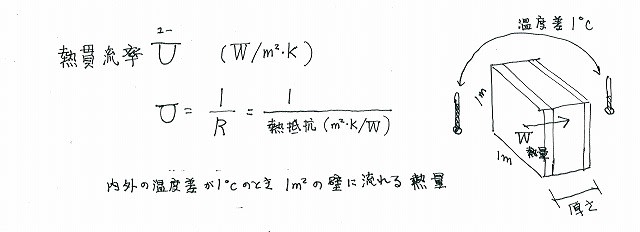 熱貫流率 U (W/m²・K)
ユー
U = 1/R = 1/熱抵抗(m²・K/W)
内外の温度差が1℃のとき 1m²の壁に流れる熱量
温度差1℃
1m
W
熱量
1m
厚さ